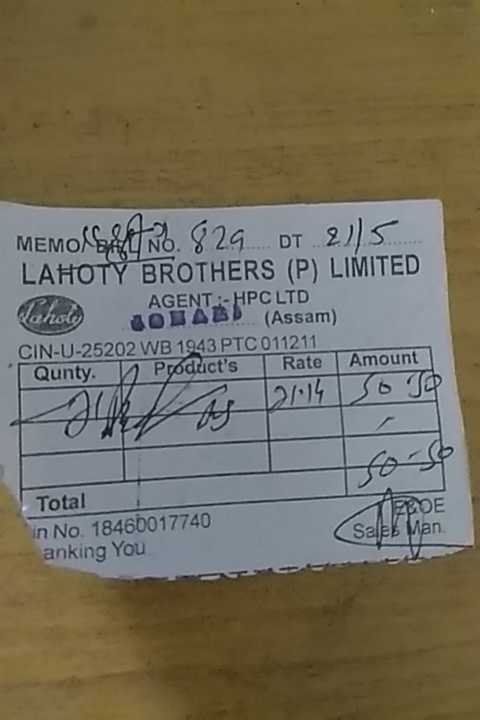 MEMO/ BILL NO. 829 DT 21/5
LAHOTY BROTHERS (P) LIMITED
Lahoty
AGENT :- HPC LTD
(Assam)
CIN-U-25202 WB 1943 PTC 011211
Qunty. Product's Rate Amount
21.14 50.50
50.50
Total
E&OE
in No. 18460017740
Sales Man.
anking You